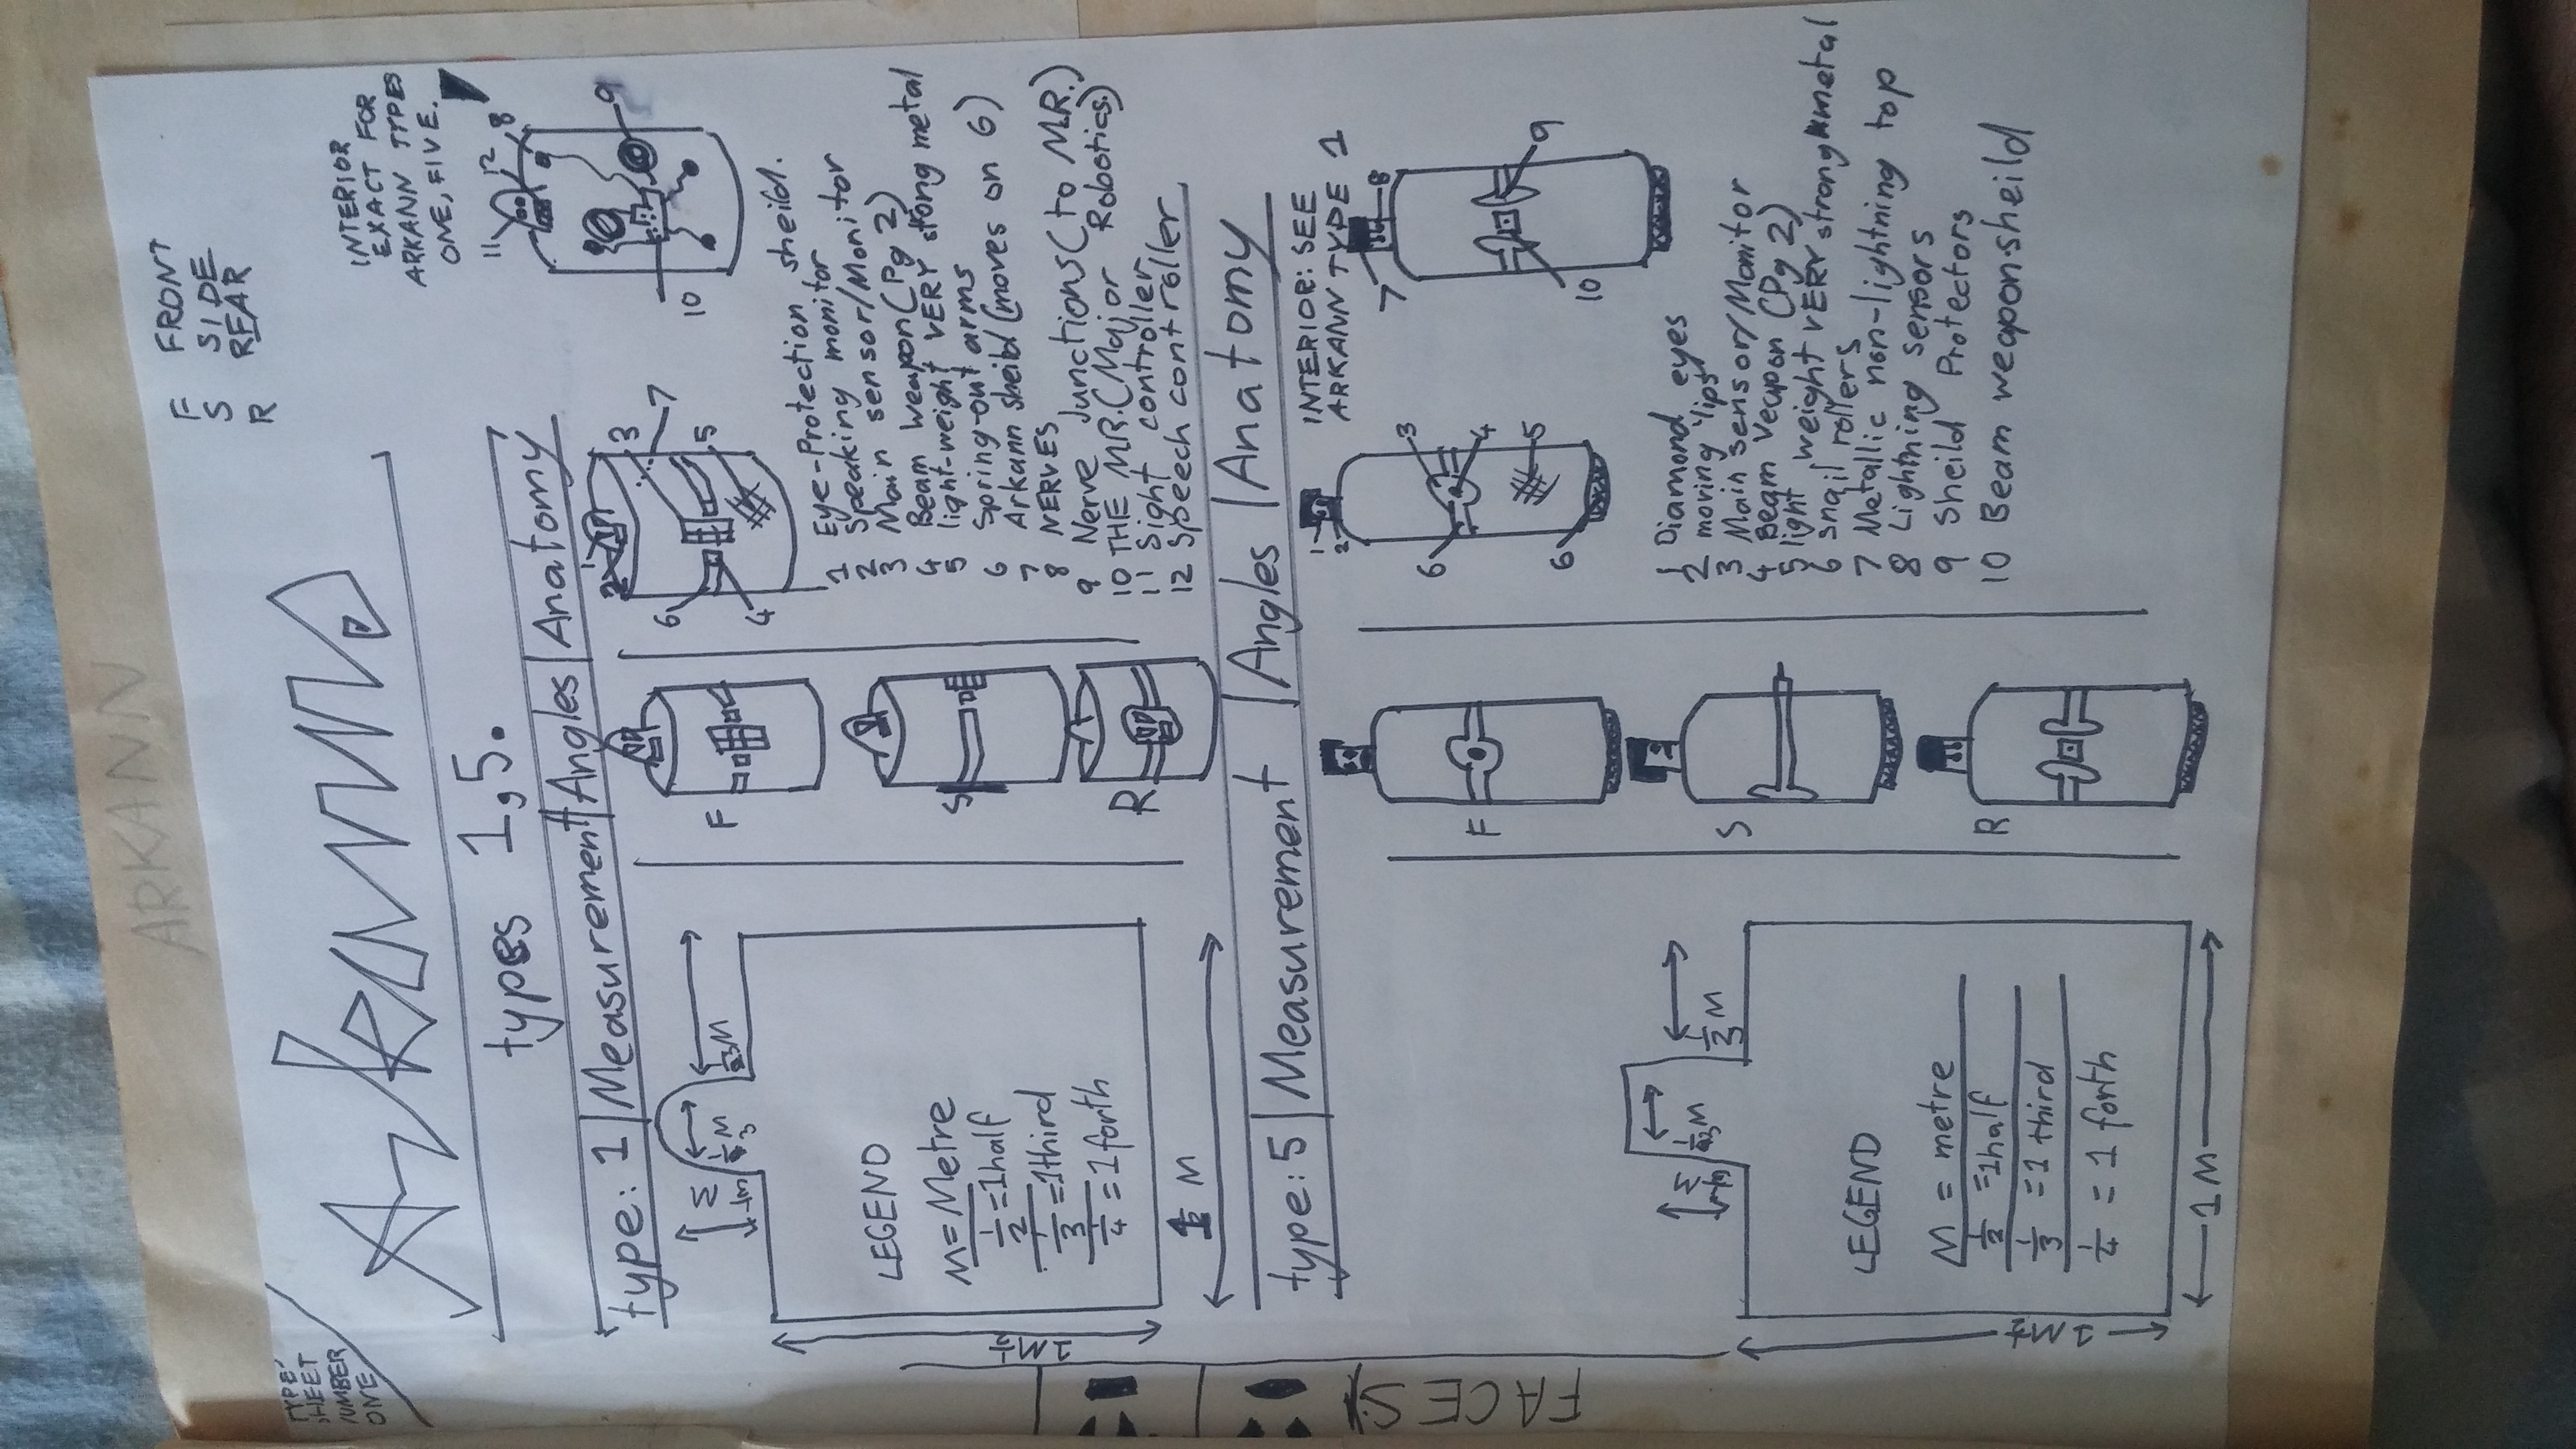 ARKANN
TYPE,
SHEET
NUMBER
ONE
Arkann
F FRONT
S SIDE
R REAR
types 1,5.
INTERIOR
EXACT FOR
ARKANN TYPES
ONE, FIVE.
type: 1 | Measurement | Angles | Anatomy
1/3 M
1/3 M
LEGEND
M = Metre
1/2 = 1half
1/3 = 1third
1/4 = 1forth
M
F
S
R
2 1 3 7 5 6 4
11 12 8 9 10
1 Eye-Protection sheild.
2 Speaking monitor
3 Main sensor/Monitor
4 Beam weapon (Pg 2)
5 light-weight VERY strong metal
6 Spring-out arms
7 Arkann sheild (moves on 6)
8 NERVES
9 Nerve Junctions (to M.R.)
10 THE M.R. (Major Robotics.)
11 Sight controller
12 Speech controller
type: 5 | Measurement | Angles | Anatomy
INTERIOR: SEE
ARKANN TYPE 1
1/3 M
1/3 M
LEGEND
M = metre
1/2 = 1half
1/3 = 1 third
1/4 = 1 forth
1 M
F
S
R
1 2 3 4 5 6 6
7 8 9 10
1 Diamond eyes
2 moving 'lips'
3 Main sensor/Monitor
4 Beam Veapon (Pg 2)
5 light weight VERY strong metal
6 snail rollers
7 Metallic non-lightning top
8 Lightning sensors
9 Sheild Protectors
10 Beam weapon-sheild
FACES